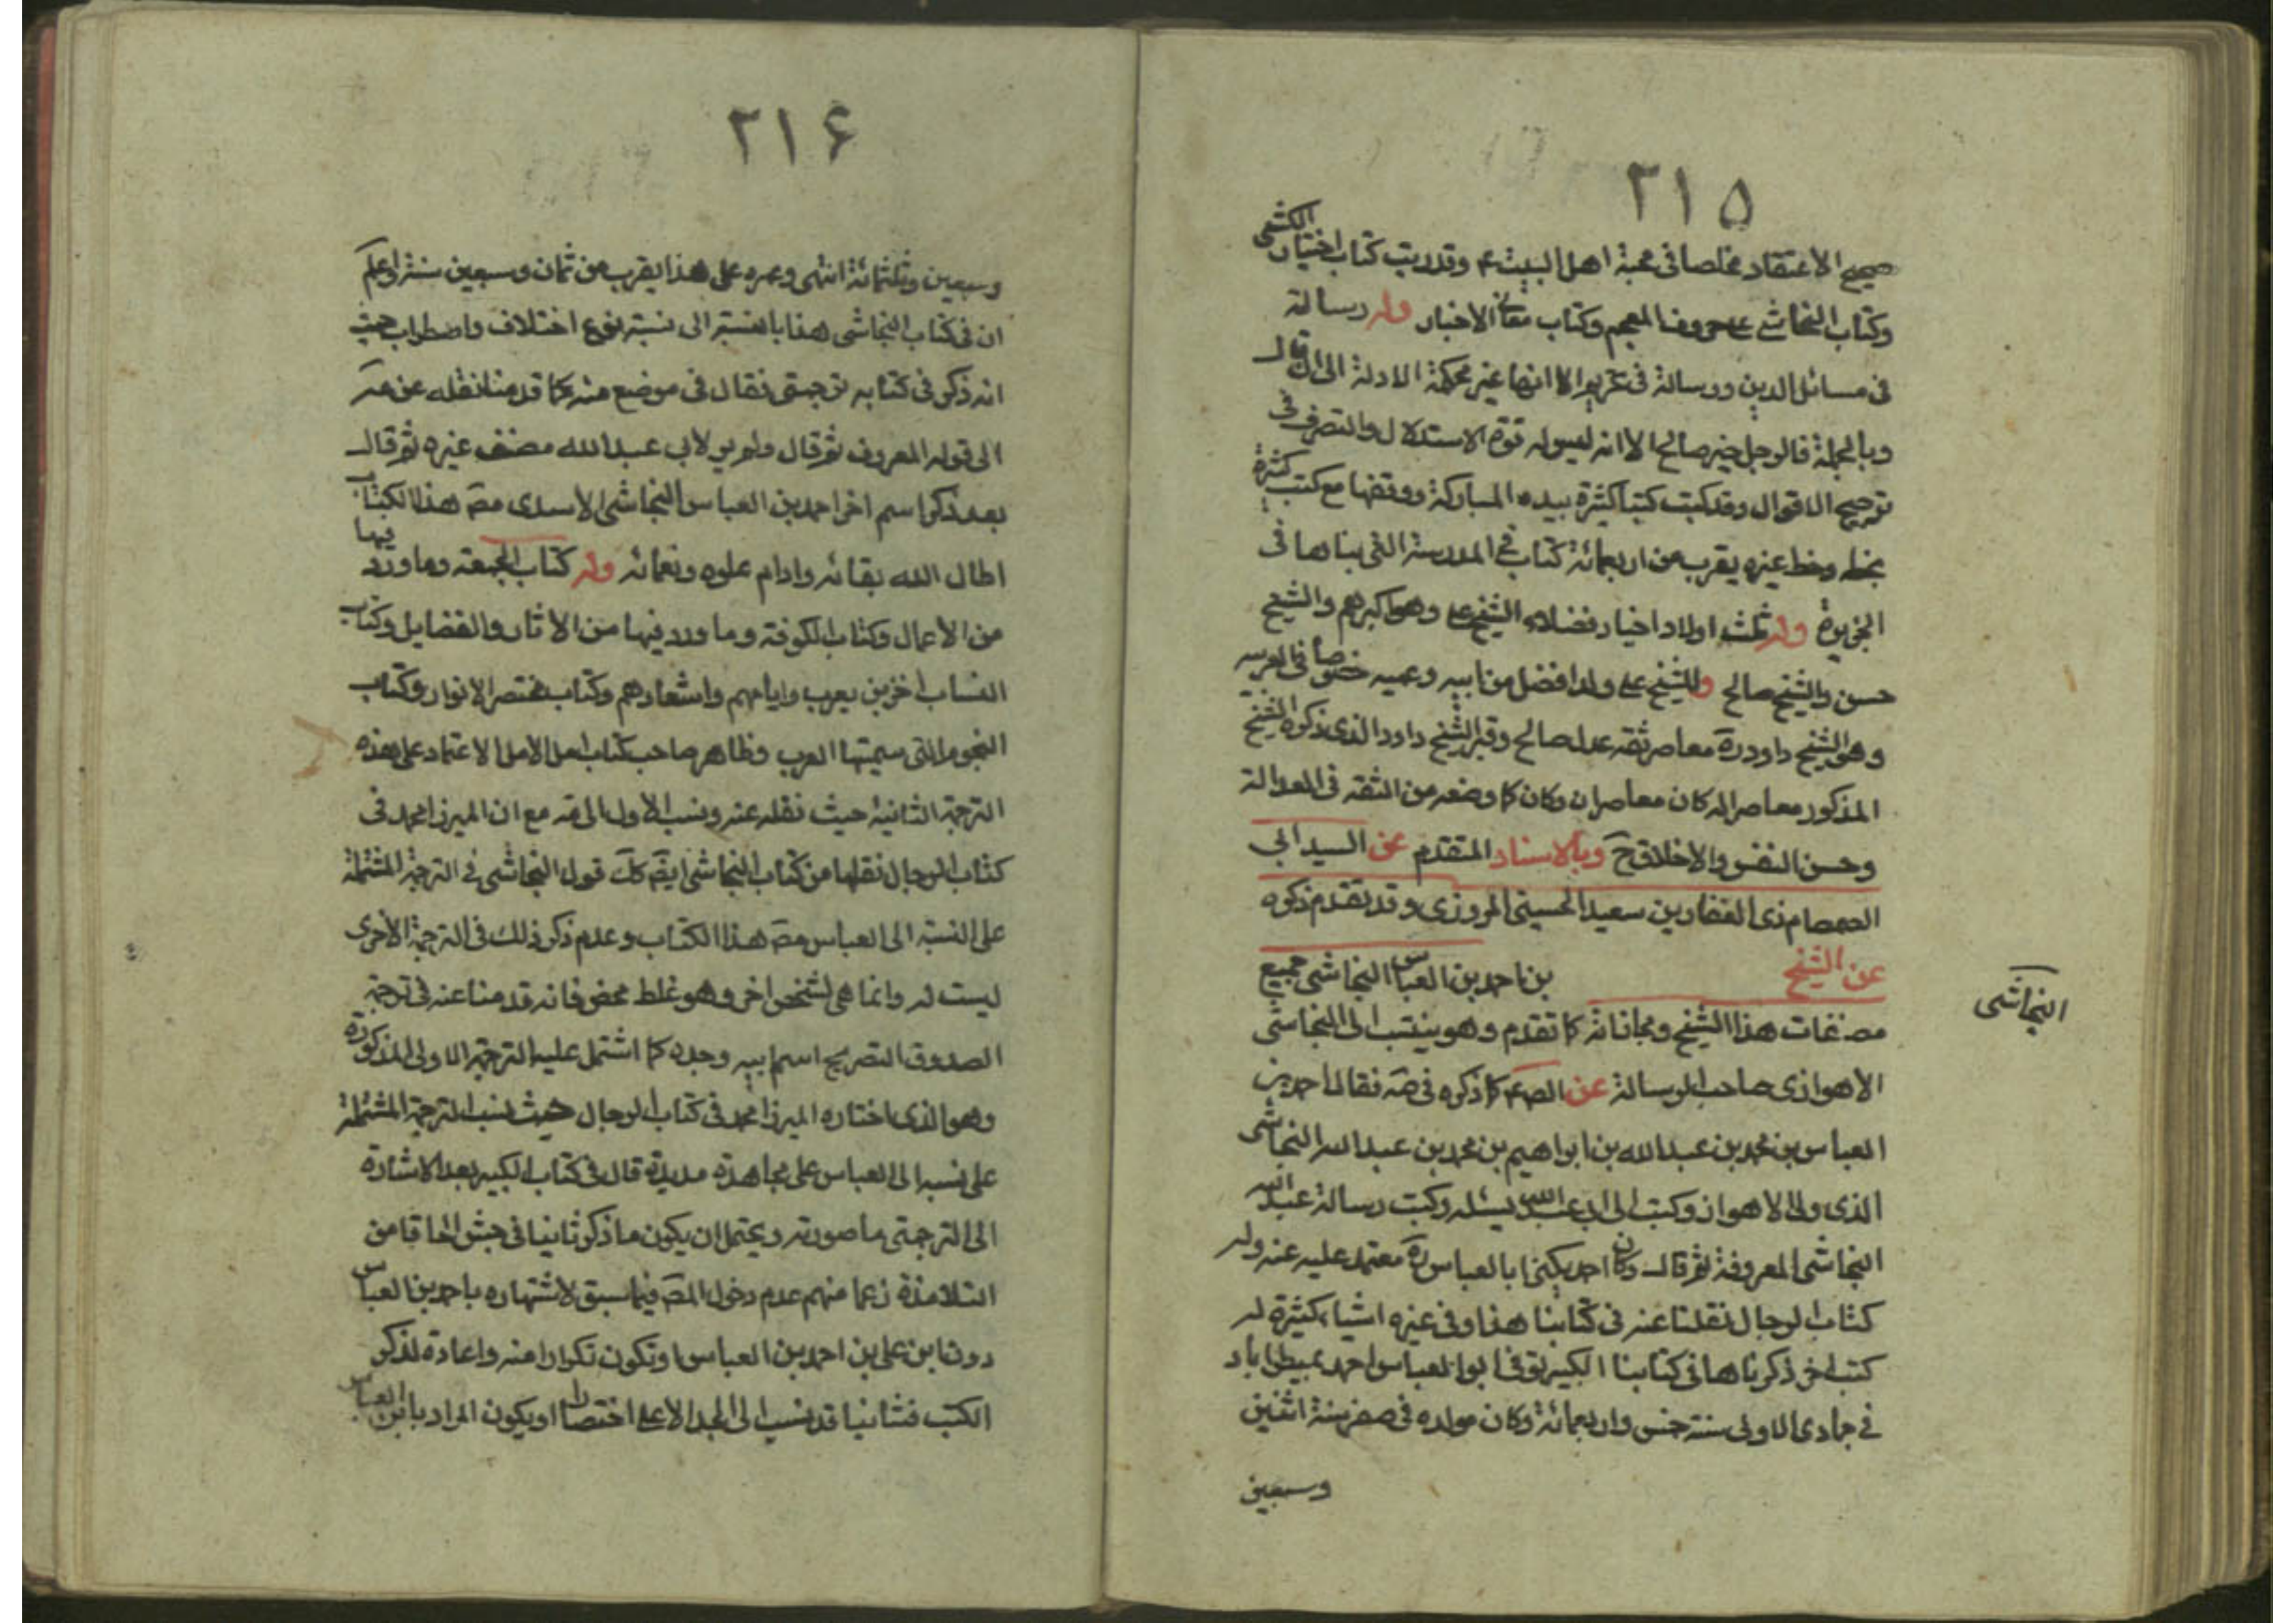 ٢١٥
صحيح الاعتقاد مخلصا فى محبة اهل البيت ع وقد رتب كتاب اختيار الكشى
وكتاب النجاشى على حروف المعجم وكتاب معانى الاخبار وله رسالة
فى مسائل الدين ورسالة فى الا انها غير محكمة الادلة الى ان قال
وبالجملة فالرجل خير صالح الا انه ليس له قوة الاستدلال والتصرف فى
ترجيح الاقوال وقد كتب كتبا كثيرة بيده المباركة ووقفها مع كتب كثيرة
بخطه وخط غيره يقرب من اربعمائة كتاب فى المدرسة التى بناها فى
الجزيرة وله ثلث اولاد اخيار فضلاء الشيخ على وهو اكبرهم والشيخ
حسن والشيخ صالح وللشيخ على ولد افضل من ابيه وعميه خصوصا فى العربيه
وهو الشيخ داود ره معاصر ثقة عدل صالح وقبر الشيخ داود الذى ذكره الشيخ
المذكور معاصر له كان معاصران وكان كما وصفه من الثقة فى العدالة
وحسن النفس والاخلاق ح وبالاسناد المتقدم عن السيد ابى
الصمصام ذى الفقار بن سعيد الحسينى المروزى وقد تقدم ذكره
عن الشيخ بن احمد بن العباس النجاشى جميع
النجاشى
مصنفات هذا الشيخ ومجازاته كما تقدم وهو ينتسب الى النجاشى
الاهوازى صاحب الرسالة عن الص ع كما ذكره فى صه فقال احمد بن
العباس بن محمد بن عبد الله بن ابراهيم بن محمد بن عبد الله النجاشى
الذى ولى الاهواز وكتب الى ابى عبد الله يسئله وكتب رسالة عبد الله
النجاشى المعروفة ثم قال وكان احمد يكنى ابا العباس ره معتمد عليه عنه وله
كتاب الرجال نقلنا عنه فى كتابنا هذا وفى غيره اشياء كثيرة له
كتب اخر ذكرناها فى كتابنا الكبير توفى ابو العباس احمد بمطيراباد
فى جمادى الاولى سنة خمس واربعمائة وكان مولده فى صفر سنة اثنين
وسبعين
٢١۶
وسبعين وثلثمائة انتهى وعمره على هذا يقرب من ثمان وسبعين سنة واعلم
ان فى كتاب النجاشى هذا بالنسبة الى نسبته نوع اختلاف واضطراب حيث
انه ذكر فى كتابه ترجمتى فقال فى موضع منه كما قدمنا نقله عن صه
الى قوله المعروف ثم قال ولم ير لأبى عبد الله مصنف غيره ثم قال
بعد ذكر اسم اخر احمد بن العباس النجاشى الاسدى مص هذا الكتاب
اطال الله بقائه وادام علوه ونعمائه وله كتاب الجمعة وما ورد فيها
من الاعمال وكتاب الكوفة وما ورد فيها من الاثار والفضايل وكتاب
انساب اخر بن يعرب وايامهم واشعارهم وكتاب مختصر الانوار وكتاب
النجوم التى سمتها العرب وظاهر صاحب كتاب امل الامل الاعتماد على هذه
الترجمة الثانية حيث نقله عنه ونسب الاول الى صه مع ان الميرزا محمد فى
كتاب الرجال نقلها من كتاب النجاشى ايضا قول النجاشى فى الترجمة المشتملة
على النسبة الى العباس مص هذا الكتاب وعدم ذكر ذلك فى الترجمة الاخرى
ليست له وانما هى لشخص اخر وهو غلط محض فانه قدمنا عنه فى ترجمة
الصدوق التصريح اسم ابيه وجده كما اشتمل عليه الترجمة الاولى المذكورة
وهو الذى اختاره الميرزا محمد فى كتاب الرجال حيث نسب الترجمة المشتملة
على نسبه الى العباس على قال فى كتاب الكبير بعد الاشارة
الى الترجمتى ما صورته ويحتمل ان يكون ما ذكر ثانيا فى جش الحاقا من
التلامذة زعما منهم عدم دخول المص فيما سبق لاشتهاره باحمد بن العباس
دون ابن على بن احمد بن العباس او تكون تكرارا منه واعادة لذكر
الكتب فثانيا قد نسب الى الجد الاعلى اختصارا او يكون المراد بابن العباس